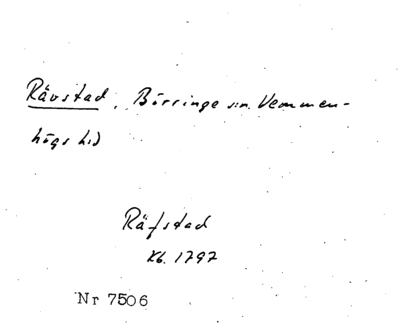 Rävstad, Börringe sn. Vemmen-
högs hd
Räfstad
Kb. 1797
Nr 7506